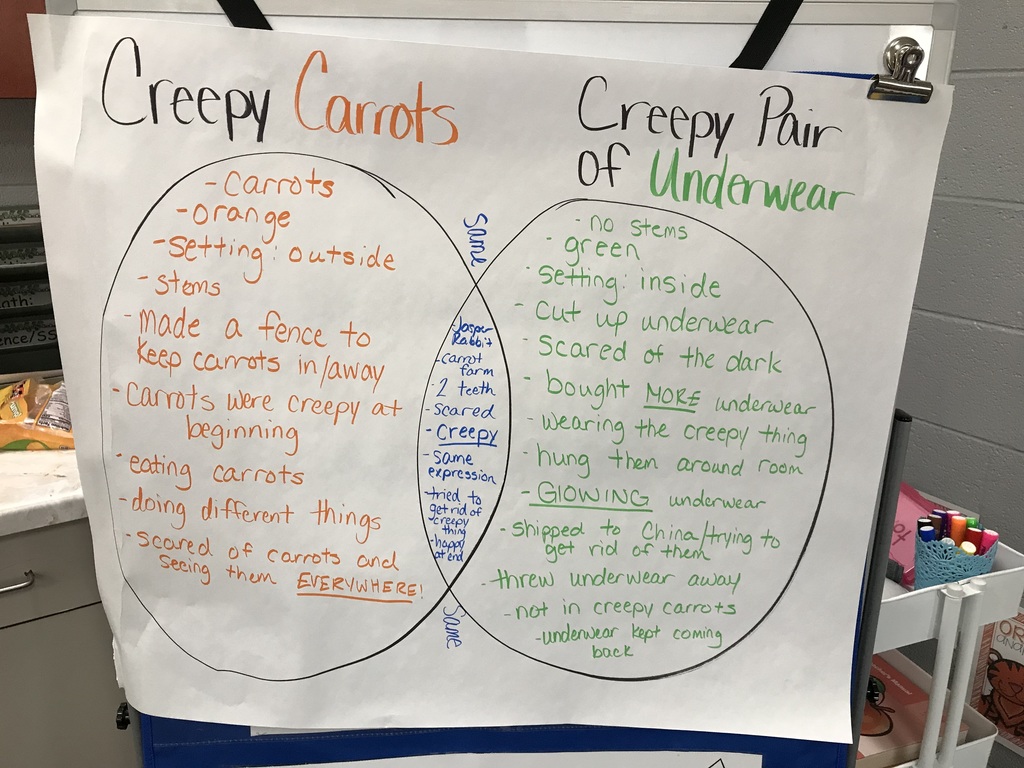 Creepy Carrots
Creepy Pair
of Underwear
- Carrots
- orange
- Setting: outside
- stems
- Made a fence to
keep carrots in/away
- Carrots were creepy at
beginning
- eating carrots
- doing different things
- scared of carrots and
seeing them EVERYWHERE!
Same
- Jasper
Rabbit
- carrot
farm
- 2 teeth
- scared
- Creepy
- same
expression
- tried to
get rid of
creepy
thing
- happy
at end
Same
- no stems
- green
- Setting: inside
- Cut up underwear
- Scared of the dark
- bought MORE underwear
- wearing the creepy thing
- hung them around room
- GlOWING underwear
- shipped to China/trying to
get rid of them
- threw underwear away
- not in creepy carrots
- underwear kept coming
back
nth:
ence/SS